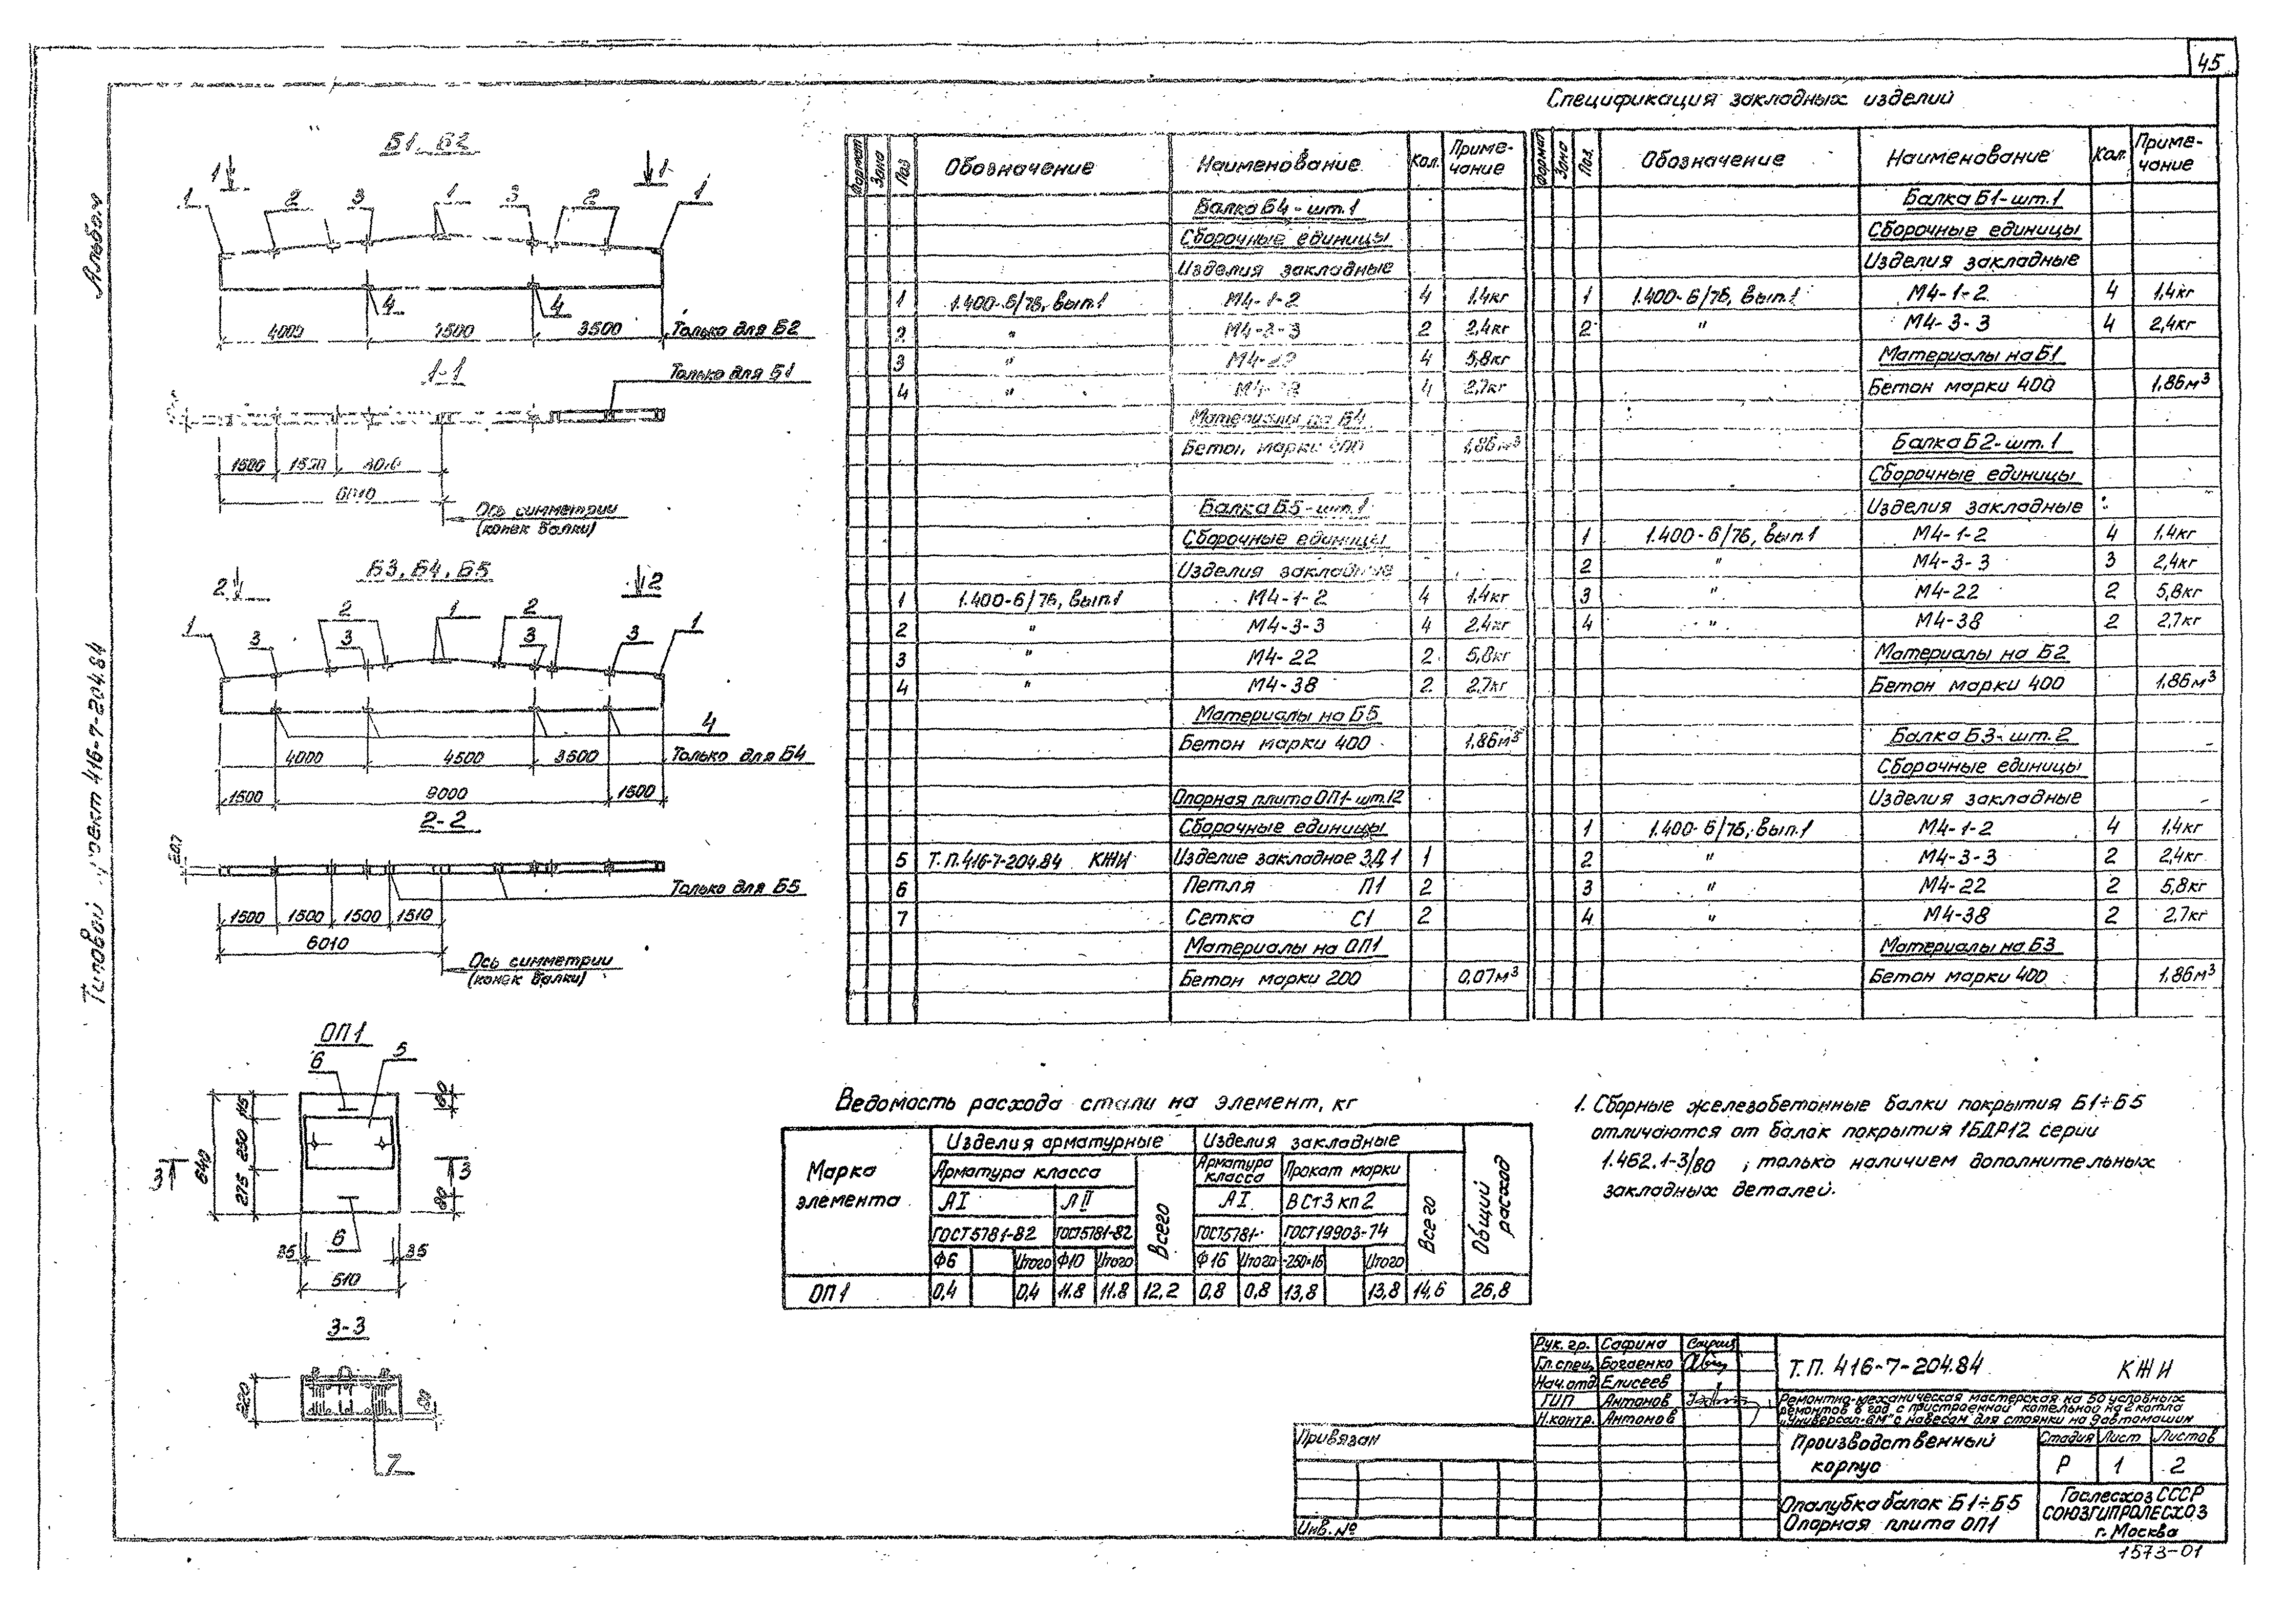 45
Альбом
Типовой проект 416-7-204.84
Б1, Б2
1 1
1 2 3 1 3 2 1
4 4
4000 4500 3500 Только для Б2
1-1
Только для Б1
1500 1500
6010
Ось симметрии
(конек балки)
Б3, Б4, Б5
2 2
1 3 2 3 1 2 3 3 1
4
4000 4500 3500 Только для Б4
1500 9000 1500
2-2
207
Только для Б5
1500 1500 1500 1510
6010
Ось симметрии
(конек балки)
ОП1
6 5
115 250 275 640
80 80
3 3
6
35 35
510
3-3
220 20
7
Спецификация закладных изделий
Формат Зона Поз Обозначение Наименование Кол. Примечание
Балка Б4-шт.1
Сборочные единицы
Изделия закладные
1 1.400-6/76, вып.1 М4-1-2 4 1,4кг
2 " М4-3-3 2 2,4кг
3 " М4-22 4 5,8кг
4 " М4-38 4 2,7кг
Материалы на Б4
Бетон марки 400 1,86м³
Балка Б5-шт.1
Сборочные единицы
Изделия закладные
1 1.400-6/76, вып.1 М4-1-2 4 1,4кг
2 " М4-3-3 4 2,4кг
3 " М4-22 2 5,8кг
4 " М4-38 2 2,7кг
Материалы на Б5
Бетон марки 400 1,86м³
Опорная плита ОП1-шт.12
Сборочные единицы
5 Т.П.416-7-204.84 КЖИ Изделие закладное ЗД1 1
6 Петля П1 2
7 Сетка С1 2
Материалы на ОП1
Бетон марки 200 0,07м³
Формат Зона Поз. Обозначение Наименование Кол. Примечание
Балка Б1-шт.1
Сборочные единицы
Изделия закладные
1 1.400-6/76, вып.1 М4-1-2 4 1,4кг
2 " М4-3-3 4 2,4кг
Материалы на Б1
Бетон марки 400 1,86м³
Балка Б2-шт.1
Сборочные единицы
Изделия закладные
1 1.400-6/76, вып.1 М4-1-2 4 1,4кг
2 " М4-3-3 3 2,4кг
3 " М4-22 2 5,8кг
4 " М4-38 2 2,7кг
Материалы на Б2
Бетон марки 400 1,86м³
Балка Б3-шт.2
Сборочные единицы
Изделия закладные
1 1.400-6/76, вып.1 М4-1-2 4 1,4кг
2 " М4-3-3 2 2,4кг
3 " М4-22 2 5,8кг
4 " М4-38 2 2,7кг
Материалы на Б3
Бетон марки 400 1,86м³
Ведомость расхода стали на элемент, кг
Марка элемента
Изделия арматурные Изделия закладные Общий расход
Арматура класса Всего Арматура класса Прокат марки Всего
АI АII АI ВСт3кп2
ГОСТ5781-82 ГОСТ5781-82 ГОСТ5781- ГОСТ19903-74
Ф6 Итого Ф10 Итого Ф16 Итого -250×16 Итого
ОП1 0,4 0,4 11.8 11.8 12,2 0,8 0,8 13,8 13,8 14,6 26,8
1. Сборные железобетонные балки покрытия Б1÷Б5
отличаются от балок покрытия 1БДР12 серии
1.462.1-3/80 , только наличием дополнительных
закладных деталей.
Рук. гр. Сафина
Гл.спец. Богаенко
Нач.отд. Елисеев
ГИП Антонов
Н.контр. Антонов
Привязан
Инв. №
Т.П. 416-7-204.84 КЖИ
Ремонтно-механическая мастерская на 50 условных
ремонтов в год с пристроенной котельной на 2 котла
„Универсал-6М" с навесом для стоянки на 9 автомашин
Производственный
корпус
Стадия Лист Листов
Р 1 2
Опалубка балок Б1÷Б5
Опорная плита ОП1
Гослесхоз СССР
СОЮЗГИПРОЛЕСХОЗ
г. Москва
1573-01